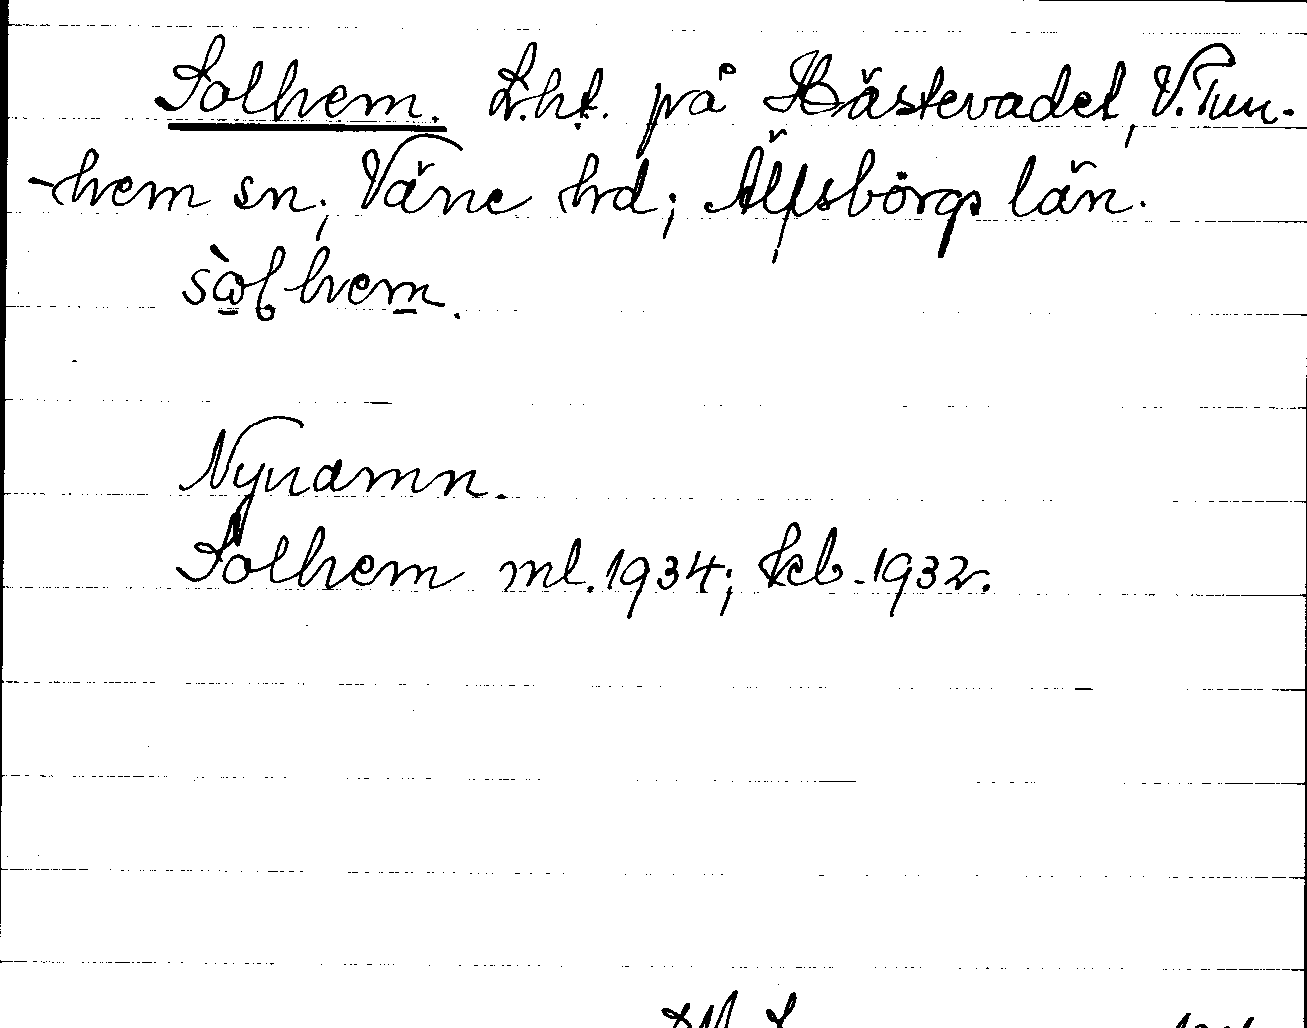 Solhem. L.ht. på Hästevadet, V. Tun-
-hem sn; Väne hd; Älfsborgs län.
sòlhem.
Nynamn.
Solhem ml. 1934; kcb. 1932.